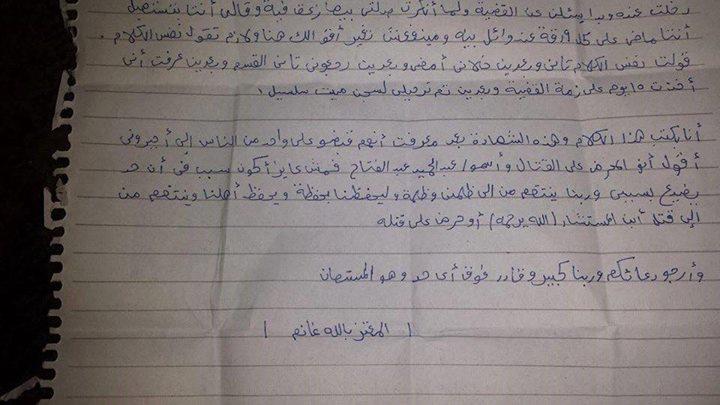 دخلت عنده وبدأ يسئلني عن القضية ولما أنكرت صلتي بيها زعق فيا وقالي أنتا هتستعبط
أنتا ماضي على كل ورقة عند وائل بيه ومينفعش نغير أقوالك هنا ولازم تقول نفس الكلام.
قولت نفس الكلام تاني وبعدين خلاني أمضي وبعدين رجعوني تاني القسم وبعدين عرفت أني
أخدت ١٥ يوم على ذمة القضية وبعدين تم ترحيلي لسجن ميت سلسيل.
أنا بكتب هذا الكلام وهذه الشهادة بعد معرفت أنهم قبضو على واحد من الناس إلى أجبروني
أقول أنو المحرض على القتال وأسمو/ عبدالحميد عبدالفتاح فمش عايز أكون سبب في أن حد
يضيع بسببي وربنا ينتقم من إلى ظلمني وظلمه وليحفظنا بحفظة ويحفظ أهلنا وينتقم من
إلى قتل أبن المستشار (الله يرحمه) أو حرض على قتله
وأرجو دعائكم وربنا كبير وقادر فوق أي حد وهو المستعان
( المعتز بالله غانم )